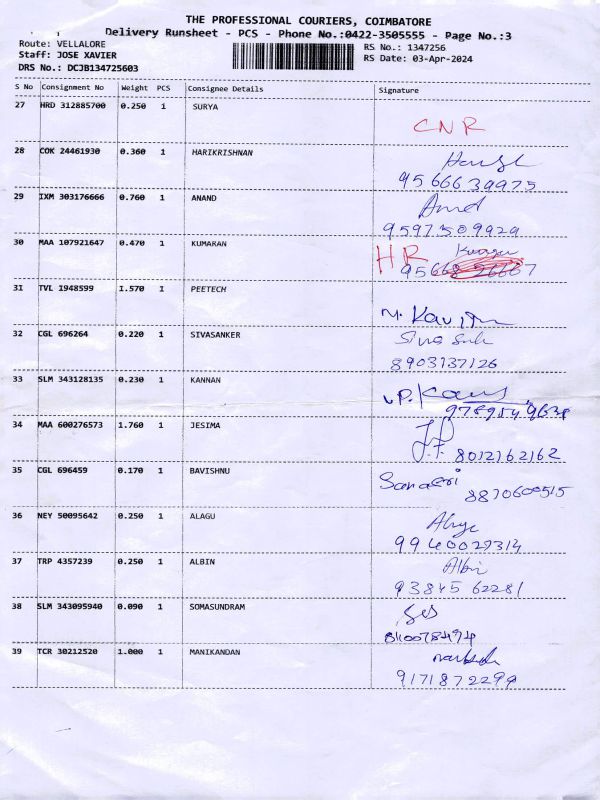 THE PROFESSIONAL COURIERS, COIMBATORE
Delivery Runsheet - PCS - Phone No.:0422-3505555 - Page No.:3
Route: VELLALORE
RS No.: 1347256
Staff: JOSE XAVIER
RS Date: 03-Apr-2024
DRS No.: DCJB134725603
S No Consignment No Weight PCS Consignee Details Signature
27 HRD 312885700 0.250 1 SURYA
CNR
28 COK 24461930 0.360 1 HARIKRISHNAN
9566639975
29 IXM 303176666 0.760 1 ANAND
Anand
9597509929
30 MAA 107921647 0.470 1 KUMARAN
HR
31 TVL 1948599 1.570 1 PEETECH
M. Kavi
32 CGL 696264 0.220 1 SIVASANKER
8903137126
33 SLM 343128135 0.230 1 KANNAN
34 MAA 600276573 1.760 1 JESIMA
J.F. 8012162162
35 CGL 696459 0.170 1 BAVISHNU
8870600515
36 NEY 50095642 0.250 1 ALAGU
9940029314
37 TRP 4357239 0.250 1 ALBIN
Albin
9384562281
38 SLM 343095940 0.090 1 SOMASUNDRAM
39 TCR 30212520 1.000 1 MANIKANDAN
9171872299